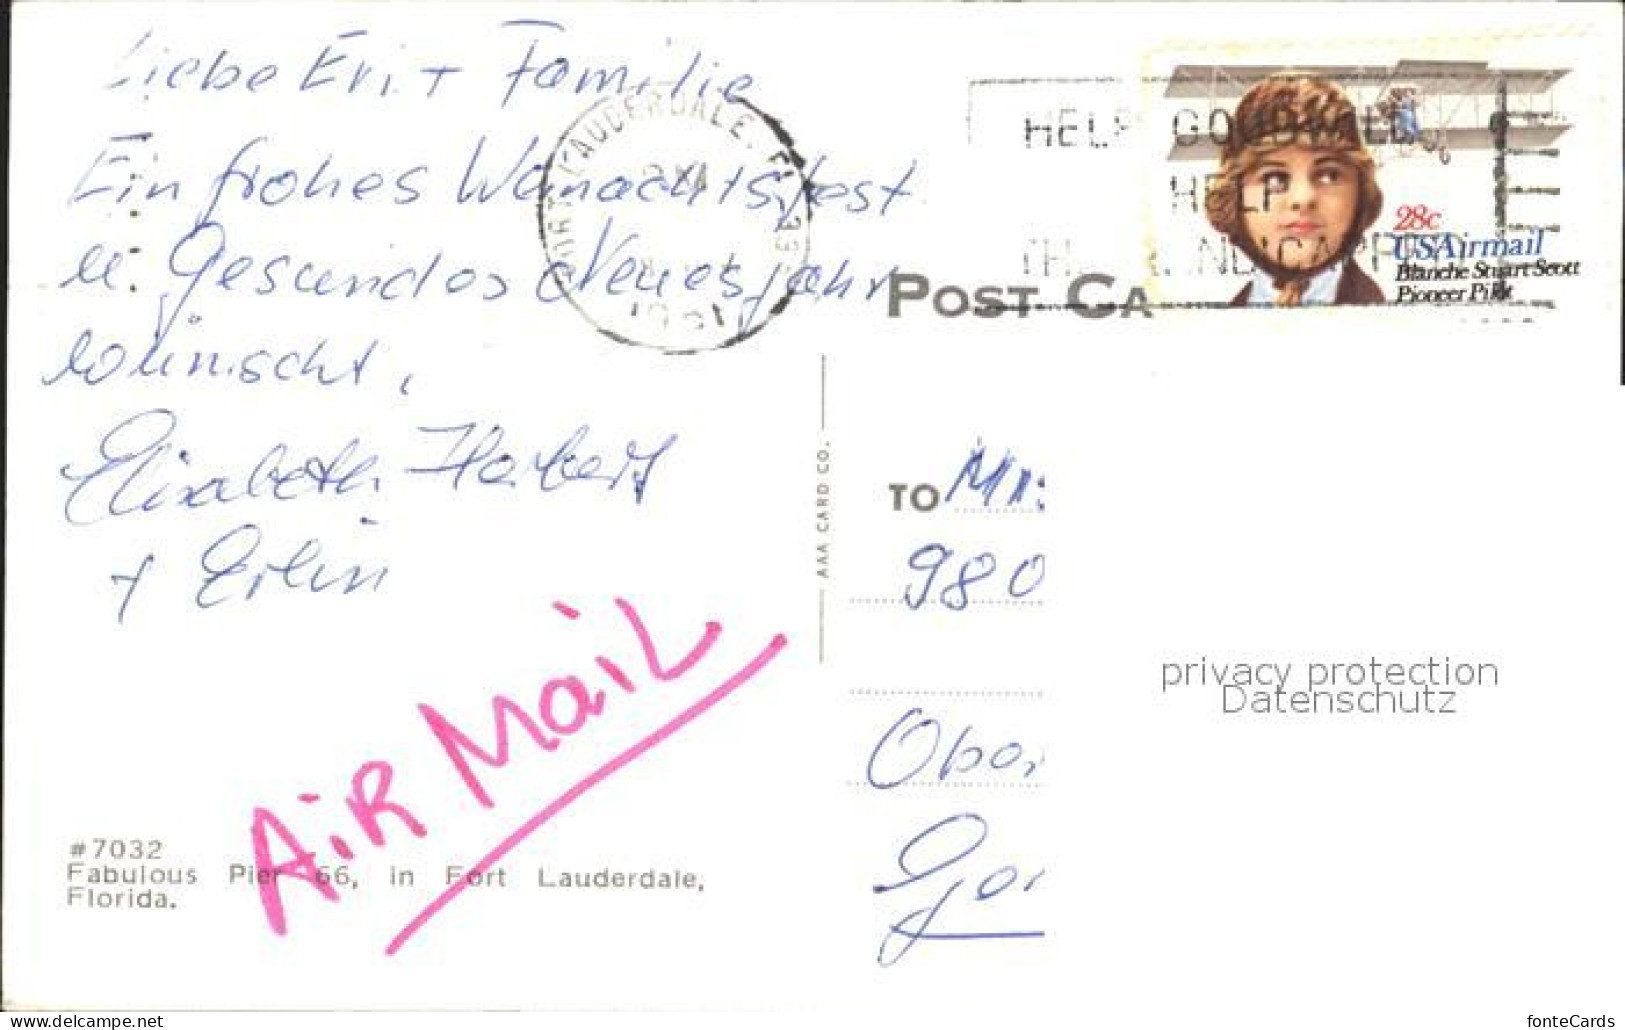 Liebe Eri + Familie
Ein frohes Weihnachtsfest
u. Gesundes Neues Jahr
wünscht,
Elisabeth Herbert
+ Erlin
AiR MaiL
#7032
Fabulous Pier 66, in Fort Lauderdale,
Florida.
FORT LAUDERDALE, FL 333
1981
HELP GOODWILL
HELP
THE HANDICAPPED
28c
USAirmail
Blanche Stuart Scott
Pioneer Pilot
POST CA
AAA CARD CO.
TO
980
privacy protection
Datenschutz
https://www.delcampe.net
fonteCards